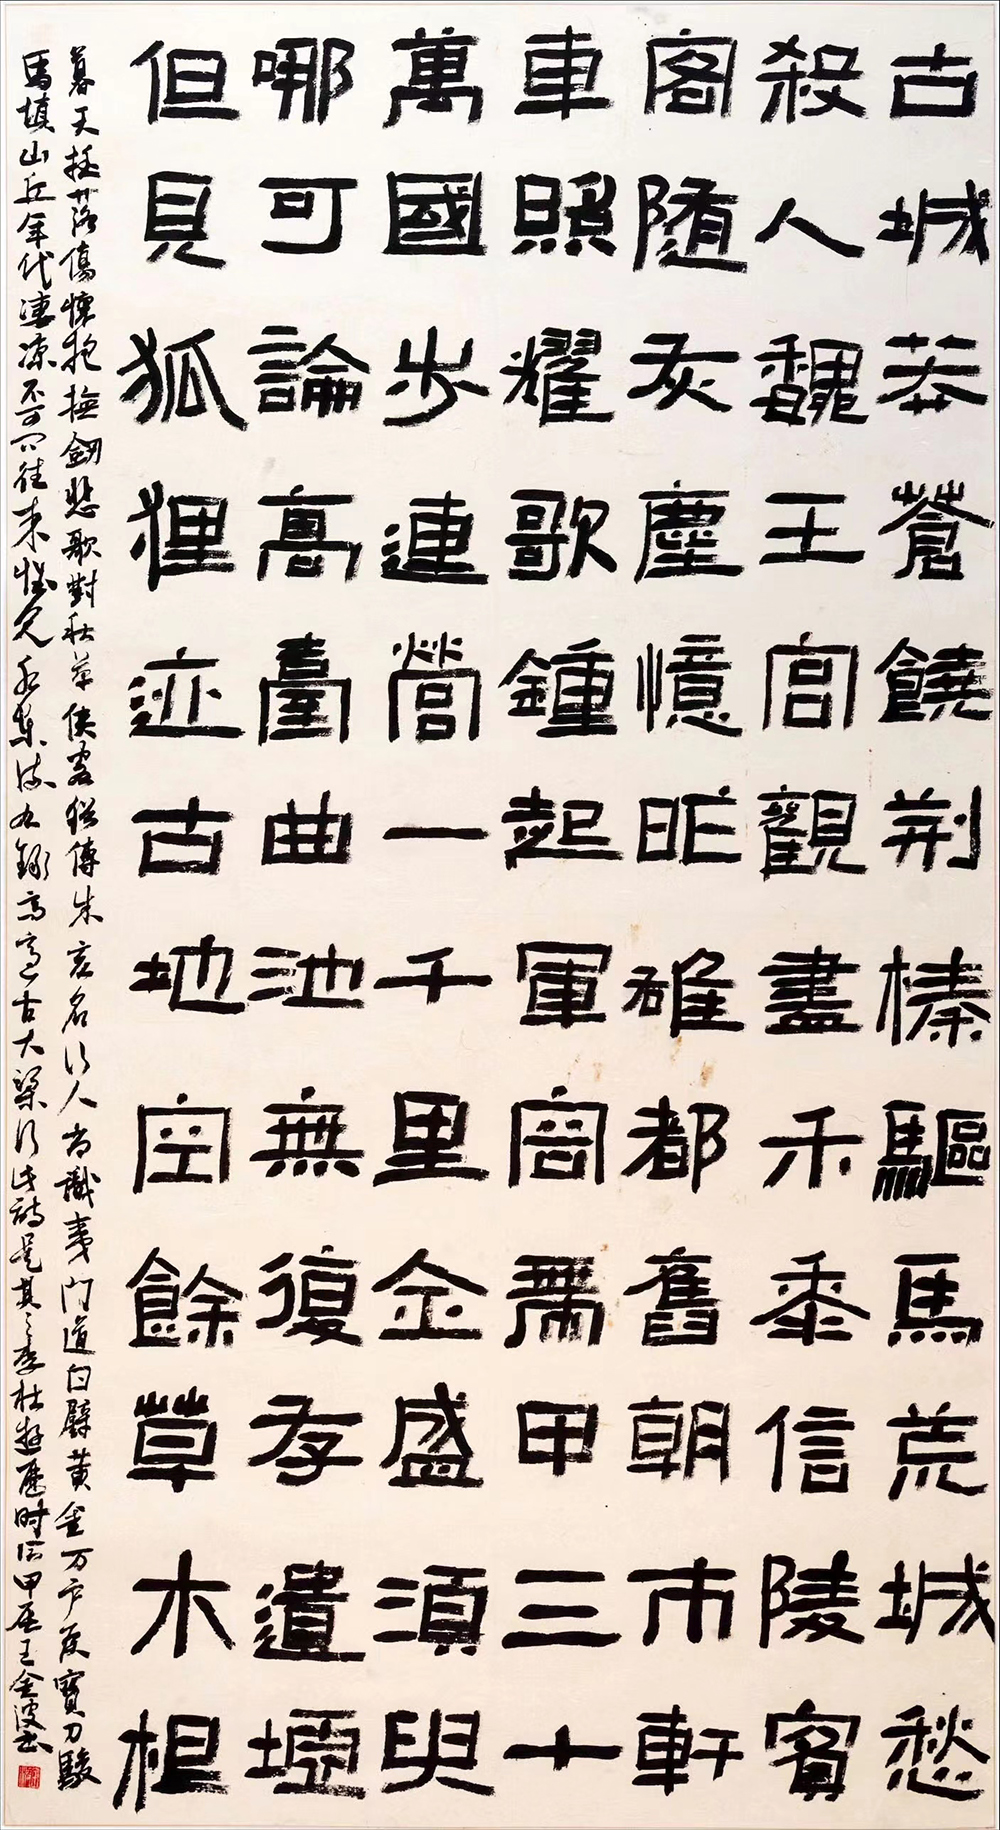 古城莽蒼饒荆榛驅馬荒城愁
殺人魏王宫觀盡禾黍信陵賓
客随灰塵憶昨雄都舊朝市軒
車照耀歌鍾起軍容帶甲三十
萬國步連營一千里金盛須臾
哪可論高臺曲池無復存遺墟
但見狐狸迹古地空餘草木根
暮天摇落傷懷抱撫劒悲歌對秋草俠客猶傳朱亥名行人尚識夷門道白璧黄金万户侯寶刀駿
馬填山丘年代凄凉不可问往来惟見水東流右録高適古大梁行此詩是其与李杜遊歷时作甲辰王金波书